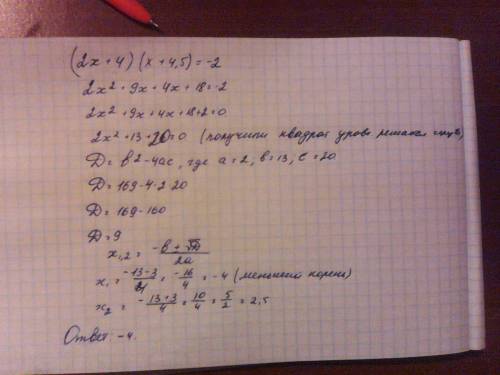 (2x+4)(x+4,5)=-2
2x²+9x+4x+18=-2
2x²+9x+4x+18+2=0
2x²+13+20=0 (получили квадрат уравн решаем)
D=b²-4ac, где a=2, b=13, c=20
D=169-4·2·20
D=169-160
D=9
x₁,₂= -b±√D / 2a
x₁= -13-3 / 4 = -16/4 = -4 (меньший корень)
x₂= -13+3 / 4 = 10/4 = 5/2 = 2,5
Ответ: -4.